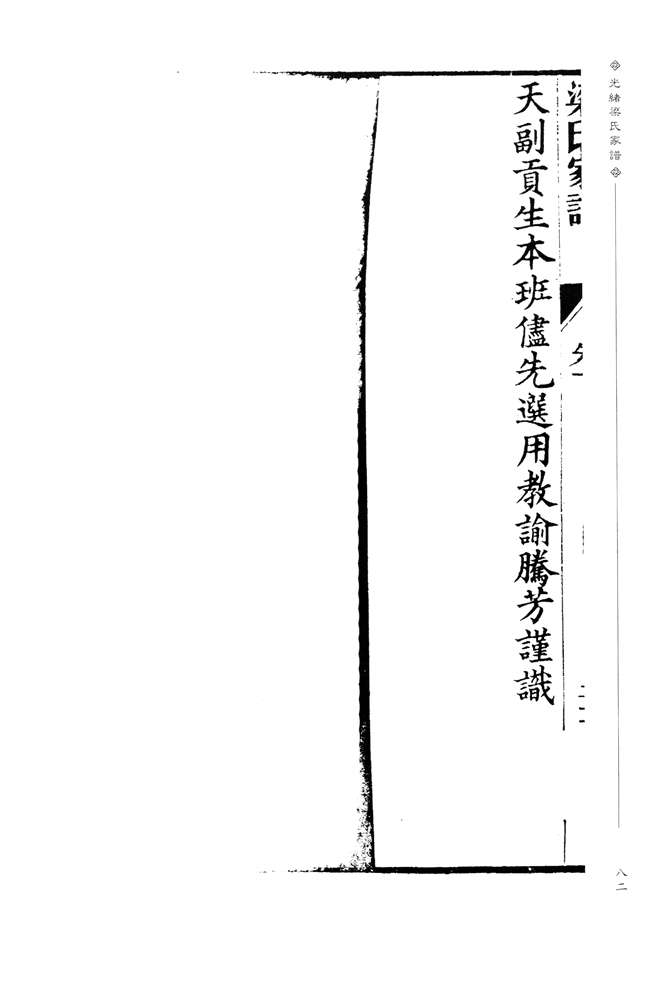 光緒梁氏家譜
八二
梁氏家譜
天副貢生本班儘先選用教諭騰芳謹識